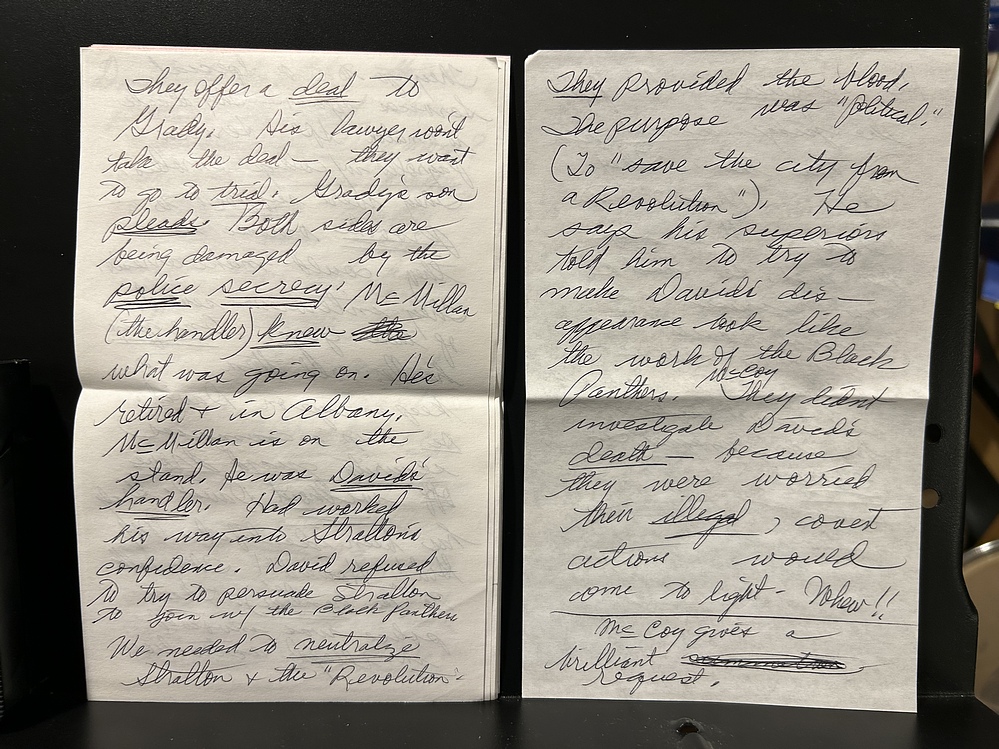 They offer a deal to
Grady. His lawyer won't
take the deal — they want
to go to trial. Grady's son
pleads. Both sides are
being damaged by the
police secrecy. McMillan
(the handler) knew the
what was going on. He's
retired + in Albany.
McMillan is on the
stand. He was David's
handler. Had worked
his way into Stratton's
confidence. David refused
to try to persuade Stratton
to join w/ the Black Panthers
We needed to neutralize
Stratton + the "Revolution".
They provided the blood.
The purpose was "political."
(To "save the city from
a Revolution"). He
says his superiors
told him to try to
make David's dis—
appearance look like
the work of the Black
Panthers. McCoy They didn't
investigate David's
death — because
they were worried
their illegal, covert
actions would
come to light — Whew!!
McCoy gives a
brilliant
request.